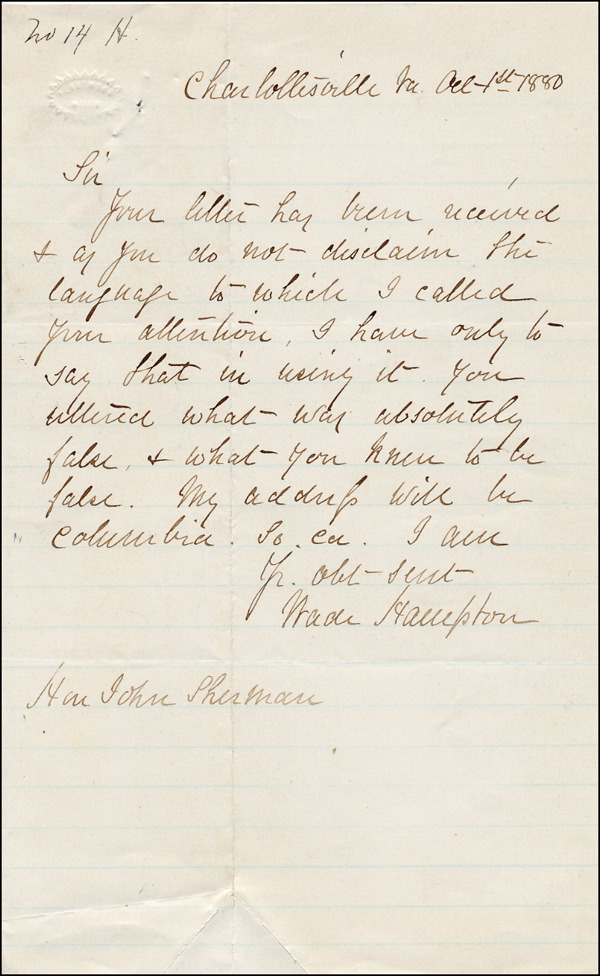 No 14 H.
Charlottesville Va. Oct 1st 1880
Sir
Your letter has been received
& as you do not disclaim the
language to which I called
your attention, I have only to
say that in using it you
uttered what was absolutely
false, & what you knew to be
false. My address will be
Columbia. So. Ca. I am
Yr. obt sevt
Wade Hampton
Hon John Sherman